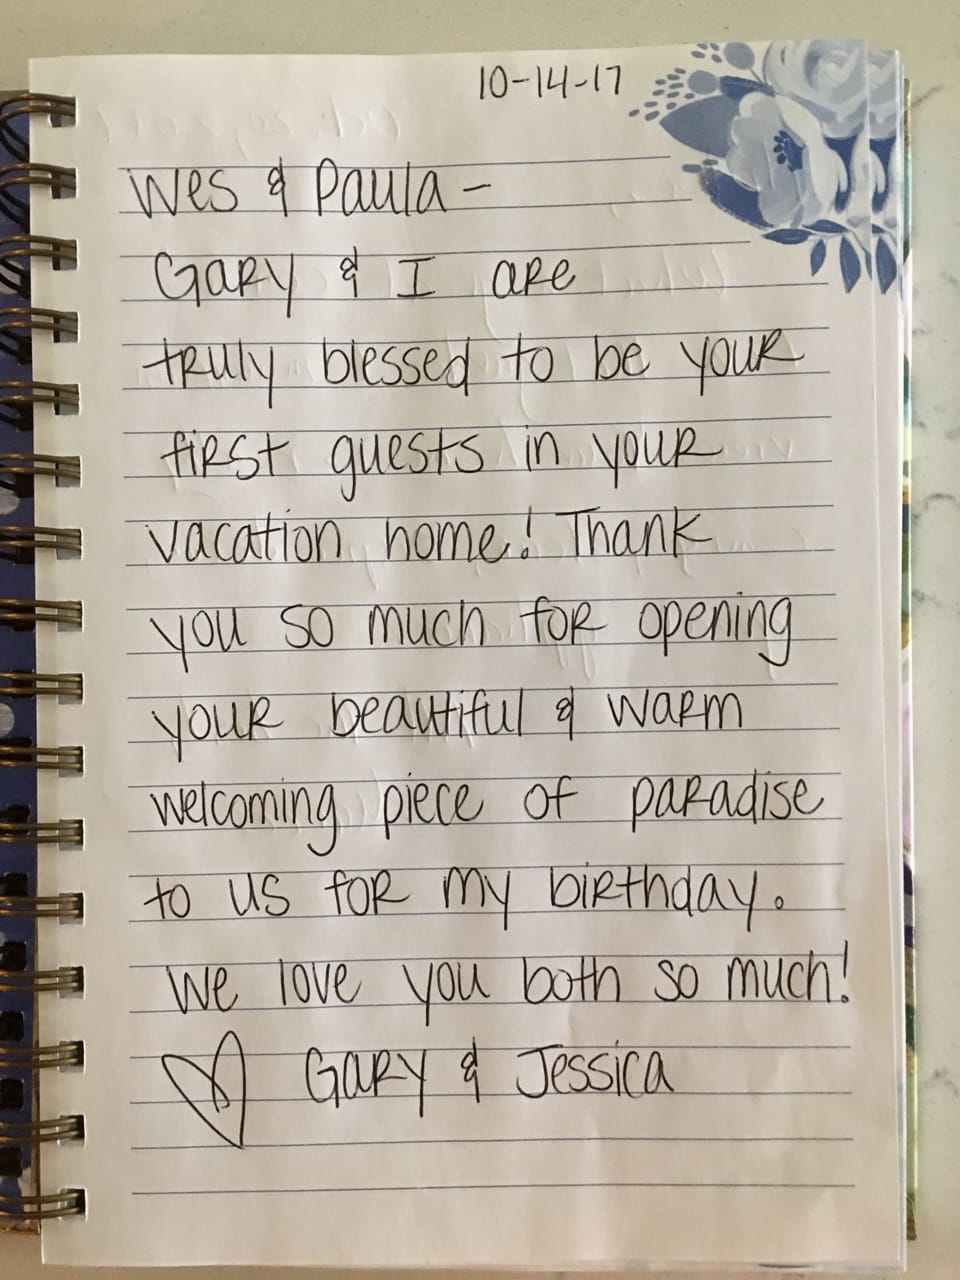 10-14-17
Wes & Paula -
Gary & I are
truly blessed to be your
first guests in your
vacation home! Thank
you so much for opening
your beautiful & warm
welcoming piece of paradise
to us for my birthday.
We love you both so much!
Gary & Jessica